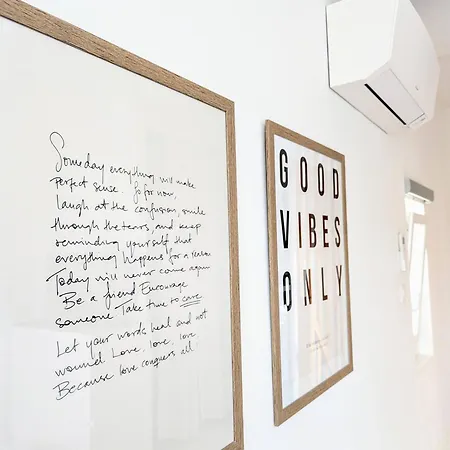 Someday everything will make
perfect sense. So for now,
laugh at the confusion, smile
through the tears, and keep
reminding yourself that
everything happens for a reason
Today will never come again
Be a friend Encourage
someone Take time to care
Let your words heal and not
wound. Love, love, love
Because love conquers all.
GOOD
VIBES
ONLY